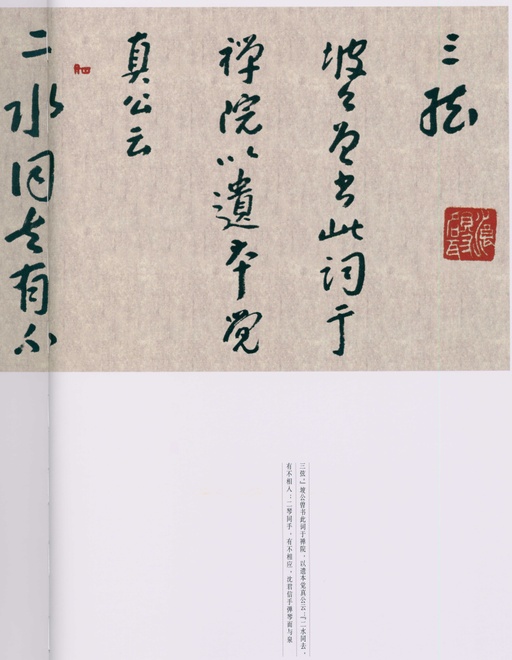 三弦
坡公曾书此词于
禅院以遗本觉
真公云
二水同去有不
三弦。”坡公曾书此词于禅院，以遗本觉真公云：“二水同去，
有不相入；二琴同手，有不相应。沈君信手弹琴而与泉